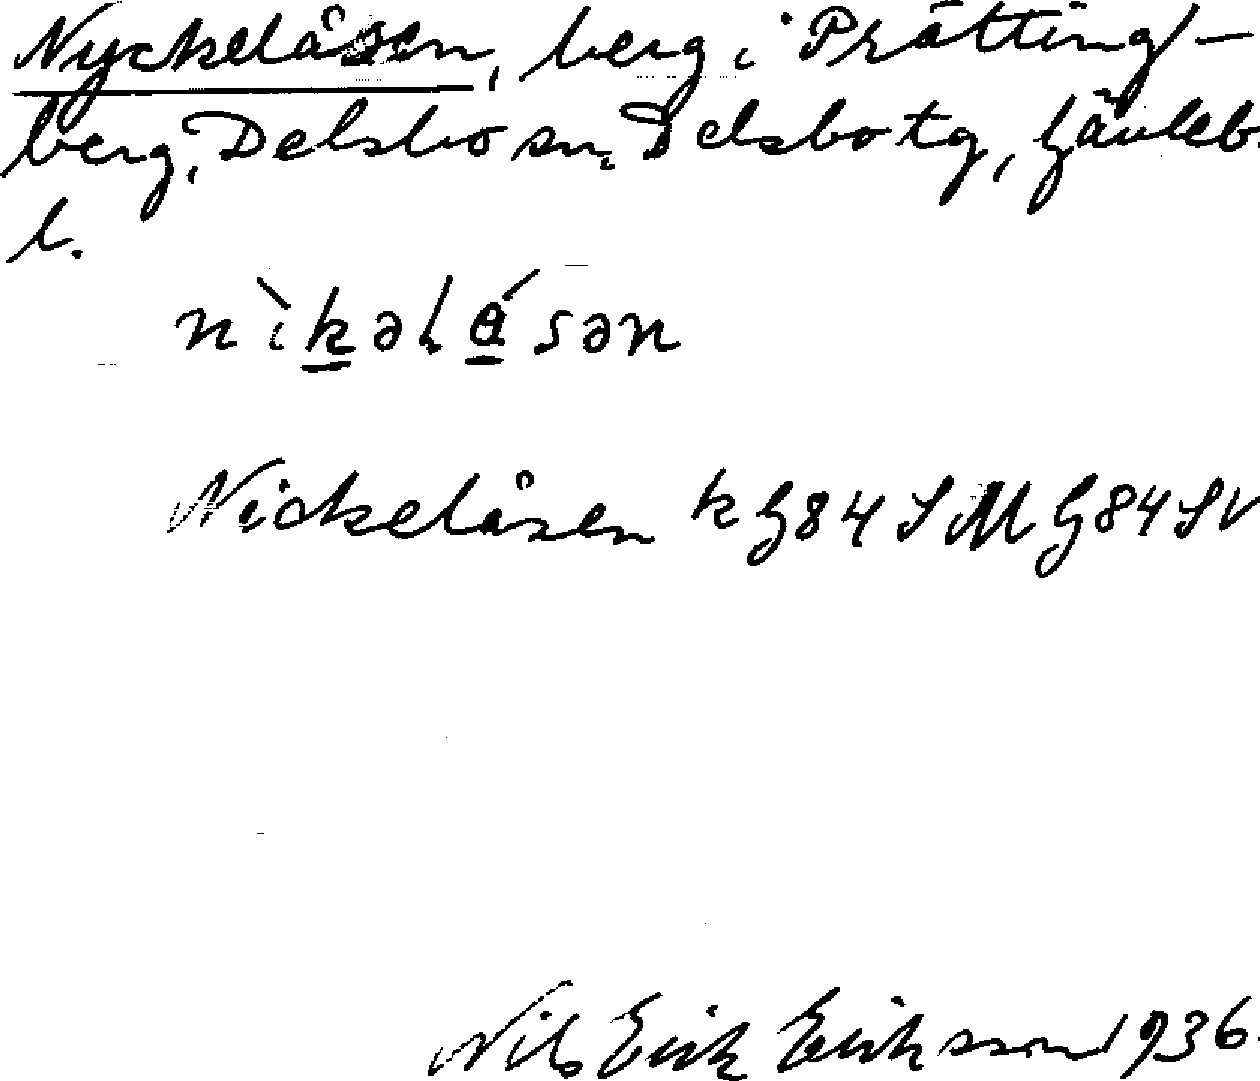 Nyckelåsen, berg i Prästing-
berg, Delsbo sn. Delsbo tg, Gävleb.
l.
nìkələ́sən
Nickelåsen k G84 S M G84 SV
Nils Erik Eriksson 1936.